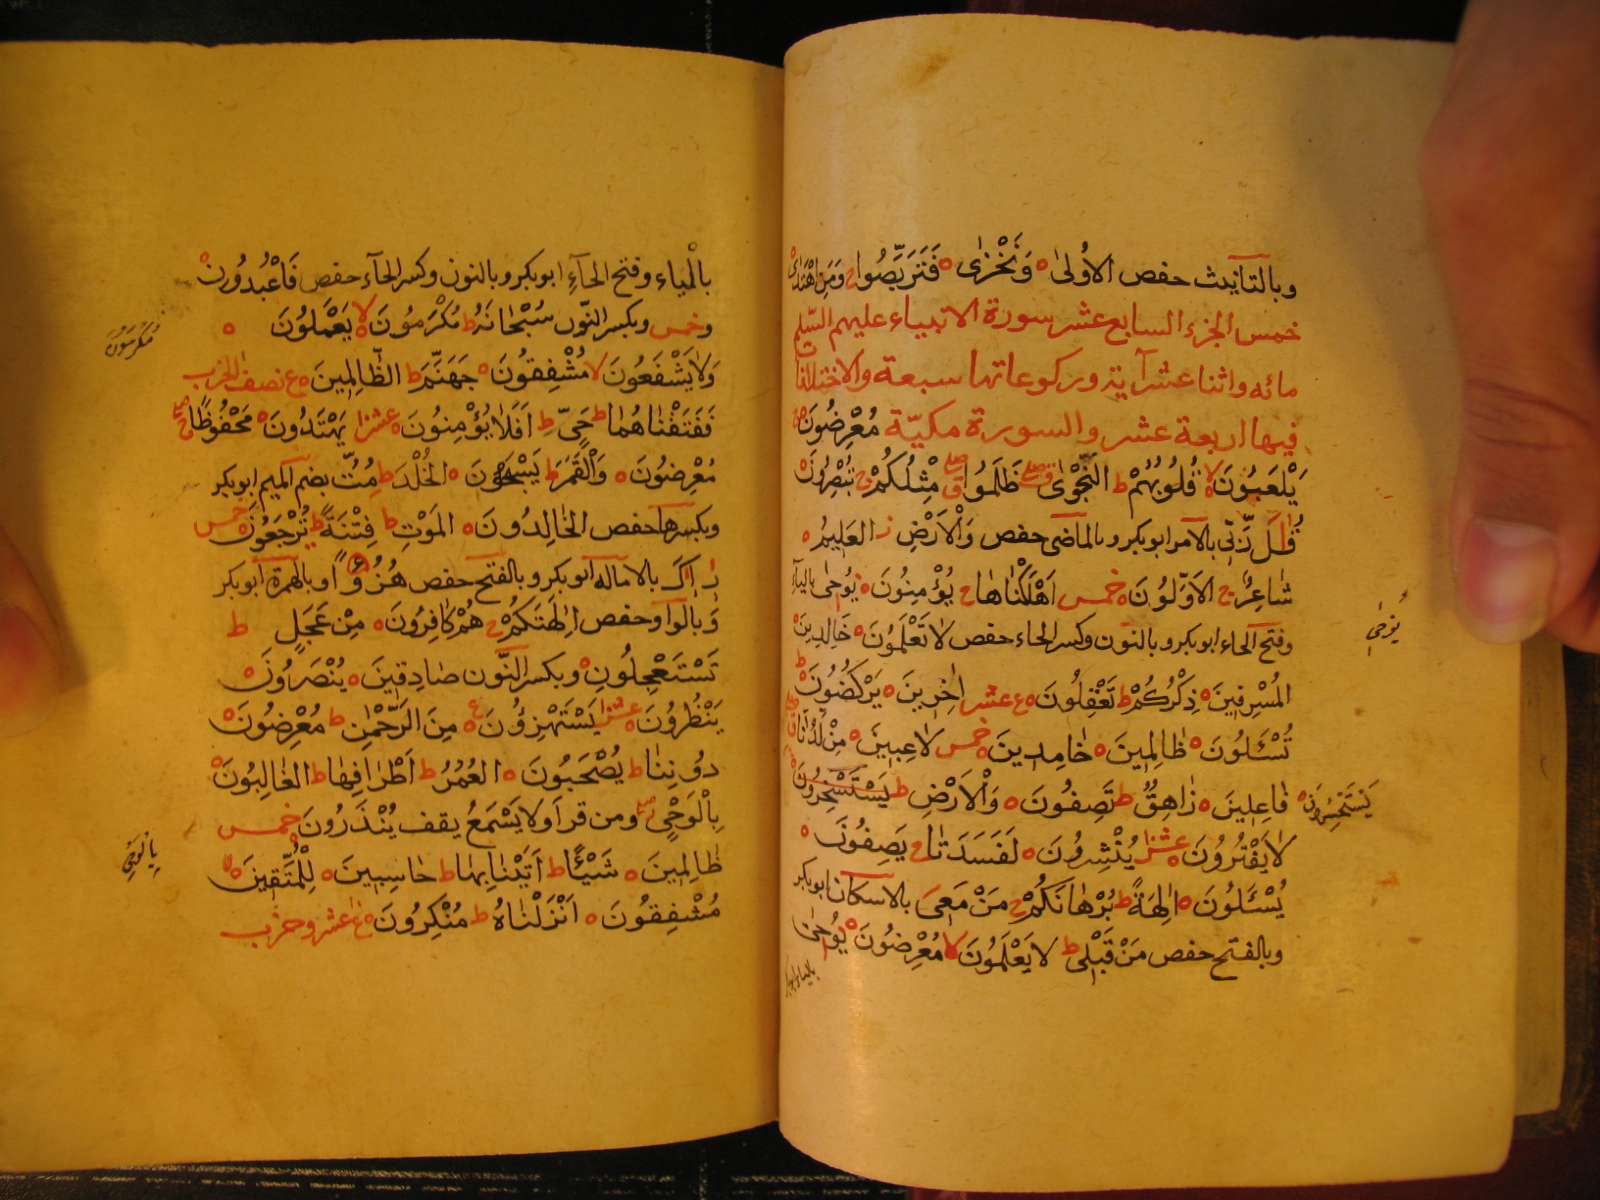 وبالتأنيث حفص الأولىٰ ه وَنَخْزٰى ه فَتَرَبَّصُوا ج وَمَنِ اهْتَدٰى ه
خمس الجزء السابع عشر سورة الانبياء عليهم السّلم
مائه واثنا عشر آية وركوعاتها سبعة والاختلافات
فيها اربعة عشر والسورة مكيّة مُعْرِضُونَ ج
يَلْعَبُونَ لا قُلُوبُهُمْ ط النَّجْوٰى ق ظَلَمُوا ق مِثْلُكُمْ ج تُبْصِرُونَ ه
قُلْ رَّبِّي بالامر ابوبكر وبالماضى حفص وَالْاَرْضِ ز العَلِيمُ ه
شَاعِرٌ ج الاَوَّلُونَ ه خمس اَهْلَكْنَاهَا ج يُؤْمِنُونَ ه يُوحٰى بالياء
وفتح الحاء ابوبكر وبالنون وكسر الحاء حفص لا تَعْلَمُونَ ه خَالِدِينَ ه
يُوحٰى
المُسْرِفِينَ ه ذِكْرُكُمْ ط تَعْقِلُونَ ه ع عشر اٰخَرِينَ ه يَرْكُضُونَ ط
تُسْئَلُونَ ه ظَالِمِينَ ه خَامِدِينَ ه خمس لاعِبِينَ ه مِنْ لَدُنَّا ق
فَاعِلِينَ ه زَاهِقٌ ط تَصِفُونَ ه وَالْاَرْضِ ط يَسْتَسْخِرُونَ ه
يَسْتَحْسِرُونَ ه
لا يَفْتُرُونَ ه عشر يُنْشِرُونَ ه لَفَسَدَتَا ج يَصِفُونَ ه
يُسْئَلُونَ ه اٰلِهَةً ط بُرْهَانَكُمْ ج مَنْ مَعِيَ بالاسكان ابوبكر
وبالفتح حفص مَنْ قَبْلِي ط لا يَعْلَمُونَ لا مُعْرِضُونَ ه يُوحٰى
بالياء ابوبكر
بالْيَاء وفتح الحَآءِ ابوبكر وبالنون وكسر الحَآء حفص فَاعْبُدُونِ ه
وخمس وبكسر النّون سُبْحَانَهُ ط مُكْرَمُونَ لا يَعْمَلُونَ ه
مُكْرَمُونَ
وَلا يَشْفَعُونَ لا مُشْفِقُونَ ه جَهَنَّمَ ط الظَّالِمِينَ ه ع نصف الحزب
فَفَتَقْنَاهُمَا ط حَيٍّ ط اَفَلا يُؤْمِنُونَ ه عشر يَهْتَدُونَ ه مَحْفُوظًا ج
مُعْرِضُونَ ه وَالْقَمَرَ ط يَسْبَحُونَ ه الخُلْدَ ط مُتَّ بضم الميم ابوبكر
وبكسرها حفص الخَالِدُونَ ه المَوْتِ ط فِتْنَةً ط تُرْجَعُونَ ه خمس
رَاٰكَ بالاماله ابوبكر وبالفتح حفص هُزُوًا وبالهمزة ابوبكر
وَبالواو حفص اٰلِهَتَكُمْ ج هُمْ كَافِرُونَ ه مِنْ عَجَلٍ ط
تَسْتَعْجِلُونِ ه وبكسر النّون صَادِقِينَ ه يُنْصَرُونَ ه
يُنْظَرُونَ ه عشر يَسْتَهْزِؤُنَ ه ع مِنَ الرَّحْمٰنِ ط مُعْرِضُونَ ه
دُونِنَا ط يُصْحَبُونَ ه العُمُرُ ط اَطْرَافِهَا ط الغَالِبُونَ ه
بِالْوَحْيِ ومن قرا وَلا يَسْمَعُ يقف يُنْذَرُونَ ه خمس
بِالْوَحْيِ
ظَالِمِينَ ه شَيْئًا ط اَتَيْنَا بِهَا ط حَاسِبِينَ ه لِلْمُتَّقِينَ لا
مُشْفِقُونَ ه اَنْزَلْنَاهُ ط مُنْكِرُونَ ه ع عشر وحزب